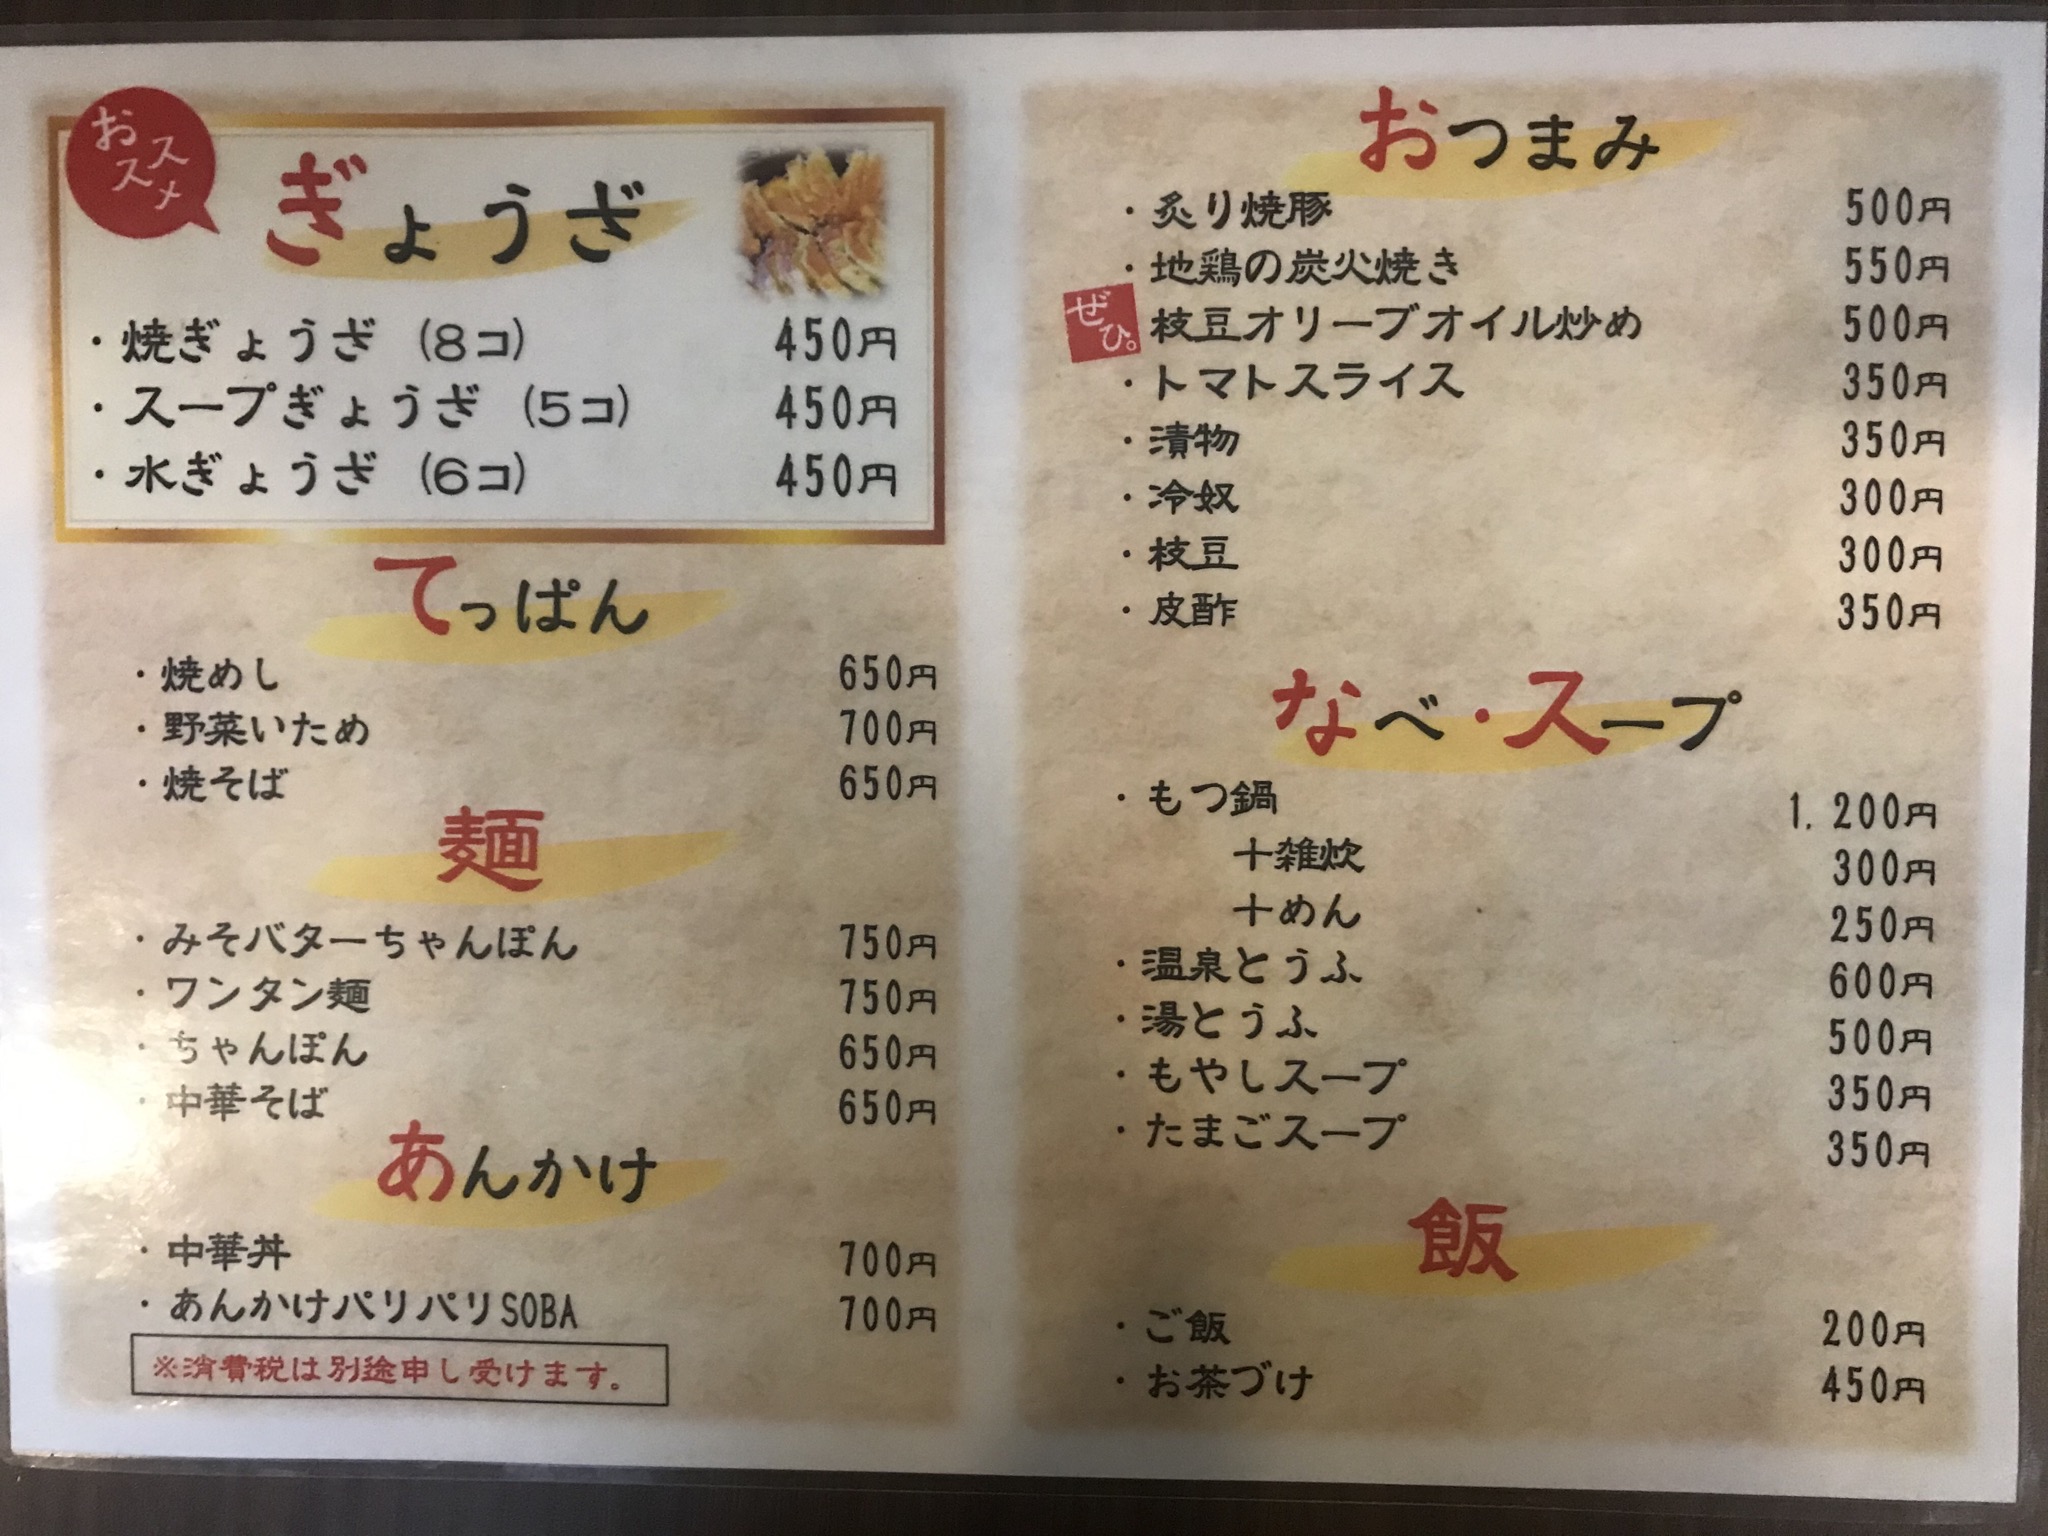 おススメ
ぎょうざ
・焼ぎょうざ (8コ) 450円
・スープぎょうざ (5コ) 450円
・水ぎょうざ (6コ) 450円
てっぱん
・焼めし 650円
・野菜いため 700円
・焼そば 650円
麺
・みそバターちゃんぽん 750円
・ワンタン麺 750円
・ちゃんぽん 650円
・中華そば 650円
あんかけ
・中華丼 700円
・あんかけパリパリSOBA 700円
※消費税は別途申し受けます。
おつまみ
・炙り焼豚 500円
・地鶏の炭火焼き 550円
ぜひ。 枝豆オリーブオイル炒め 500円
・トマトスライス 350円
・漬物 350円
・冷奴 300円
・枝豆 300円
・皮酢 350円
なべ・スープ
・もつ鍋 1.200円
＋雑炊 300円
＋めん 250円
・温泉とうふ 600円
・湯とうふ 500円
・もやしスープ 350円
・たまごスープ 350円
飯
・ご飯 200円
・お茶づけ 450円